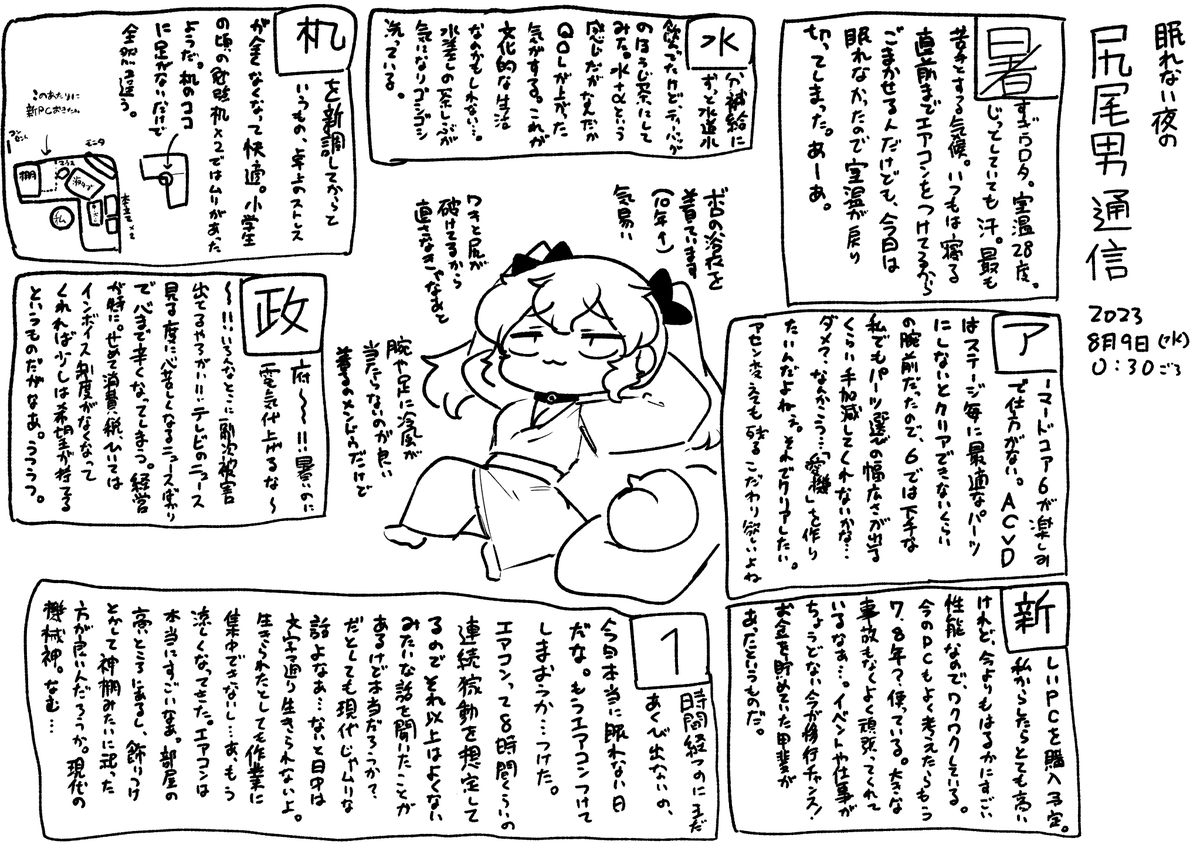 眠れない夜の
尻尾男通信
2023
8月9日(水)
0:30ごろ
暑すぎワロタ。室温28度。
じっとしていても汗。最も
苦手とする気候。いつもは寝る
直前までエアコンをつけてるから
ごまかせるんだけども、今日は
眠れなかったので室温が戻り
切ってしまった。あーあ。
アーマードコア6が楽しみ
で仕方がない。ACVD
はステージ毎に最適なパーツ
にしないとクリアできないくらい
の腕前だったので、6では下手な
私でもパーツ選びの幅広さが出る
くらい手加減してくれないかな…
ダメ?なんかこう…「愛機」を作り
たいんだよねぇ。それでクリアしたい。
アセン変えても残るこだわり欲しいよね
新しいPCを購入予定。
私からしたらとても高い
けれど、今よりもはるかにすごい
性能なので、ワクワクしている。
今のPCもよく考えたらもう
7、8年?使っている。大きな
事故もなくよく頑張ってくれて
いるなあ…。イベントや仕事が
ちょうどない今が移行チャンス!
お金を貯めていた甲斐が
あったというものだ。
水分補給に
ずっと水道水
飲んでたけど、ティーバッグ
のほうじ茶にして
みた。水+αという
感じだがなんだか
QOLが上がった
気がする。これが
文化的な生活
なのかもしれない…。
水差しの茶しぶが
気になりゴシゴシ
洗っている。
机を新調してからと
いうもの、卓上のストレス
が全くなくなって快適。小学生
の頃の勉強机×2ではムリがあった
ようだ。机のココ
に足がないだけで
全然違う。
このあたりに
新PCおきたい
モニタ
棚
私
ボロの浴衣を
着ています
(10年↑)
気易い
ワキと尻が
破けてるから
直さなきゃなあと
腕や足に冷風が
当たらないのが良い
着るのメンドウだけど
政府〜〜!!暑いのに
電気代上げるな〜
〜!!!いろんなとこに二次被害
出てるやろがい!!テレビのニュース
見る度に心苦しくなるニュースばかり
で心まで辛くなってしまう。経営
が特に。せめて消費税、ひいては
インボイス制度がなくなって
くれれば少しは希望が持てる
というものだがなあ。うううう。
1時間経つのにまだ
あくび出ないの、
今日本当に眠れない日
だな。もうエアコンつけて
しまおうか…つけた。
エアコンって8時間くらいの
連続稼動を想定して
るのでそれ以上はよくない
みたいな話を聞いたことが
あるけど本当だろうか?
だとしても現代じゃムリな
話よなあ…ないと日中は
文字通り生きられないよ。
生きられたとしても作業に
集中できないし…あ、もう
涼しくなってきた。エアコンは
本当にすごいなあ。部屋の
高いところにあるし、飾りつけ
とかして神棚みたいに祀った
方が良いんだろうか。現代の
機械神。なむ…